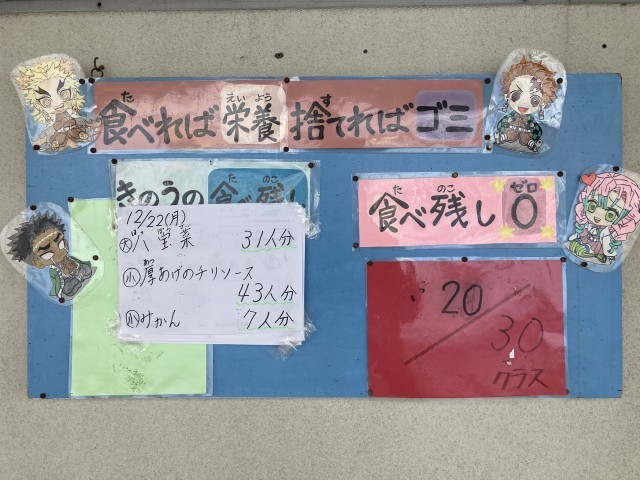 食べれば栄養 捨てればゴミ
きのうの食べ残し
12/22(月)
大 八宝菜 31人分
小 厚あげのチリソース
43人分
小 みかん 7人分
食べ残し0
20/30
クラス